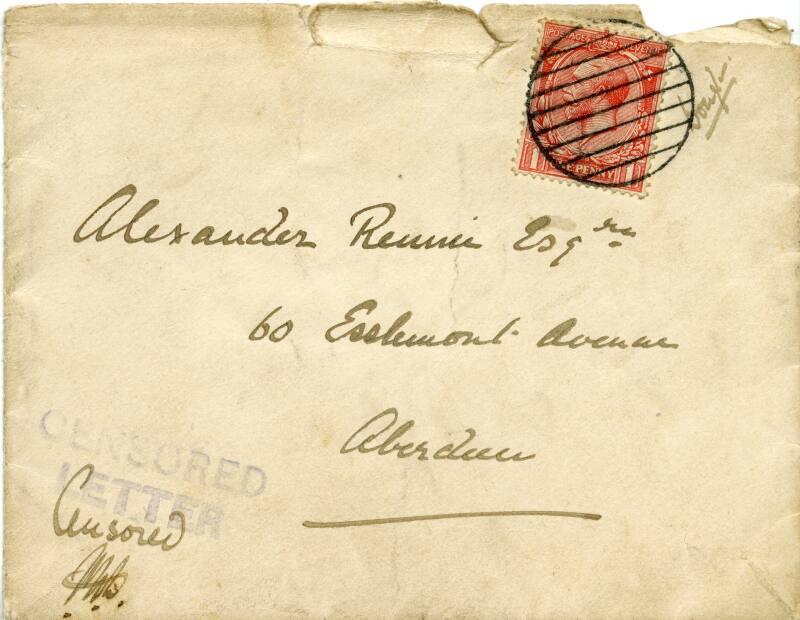 POSTAGE REVENUE
1 ONE PENNY 1
Alexander Rennie Esqre
60 Esslemont Avenue
Aberdeen
CENSORED
LETTER
Censored